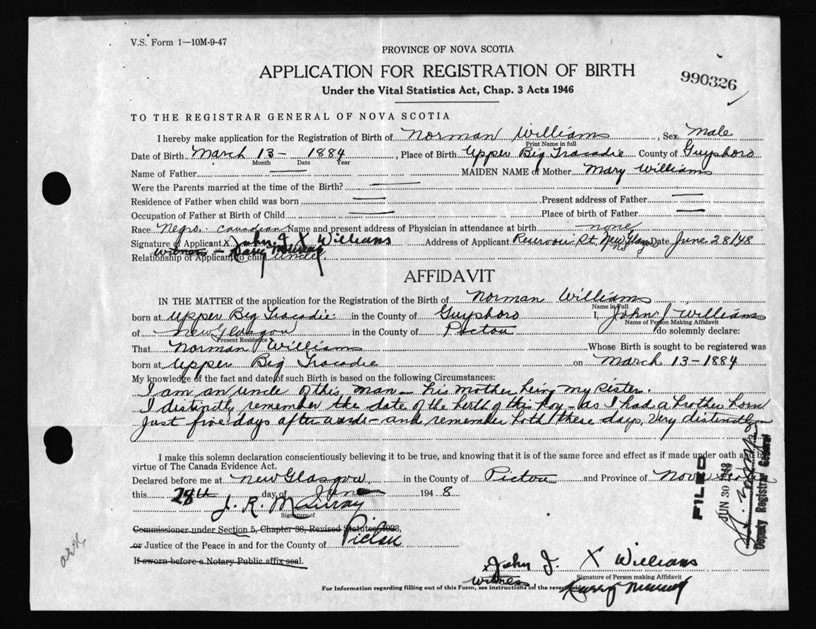 V.S. Form 1—10M-9-47
PROVINCE OF NOVA SCOTIA
APPLICATION FOR REGISTRATION OF BIRTH
Under the Vital Statistics Act, Chap. 3 Acts 1946
990326
TO THE REGISTRAR GENERAL OF NOVA SCOTIA
I hereby make application for the Registration of Birth of Norman Williams Sex Male
Print Name in full
Date of Birth March 13 - 1884, Place of Birth Upper Big Tracadie County of Guysboro
Month Date Year
Name of Father — MAIDEN NAME of Mother Mary Williams
Were the Parents married at the time of the Birth? —
Residence of Father when child was born — Present address of Father —
Occupation of Father at Birth of Child — Place of birth of Father —
Race Negro - Canadian Name and present address of Physician in attendance at birth none
Signature of Applicant X John J X Williams Address of Applicant Reservoir St. New Glasg Date June 28/48
witness -
Relationship of Applicant to child Uncle.
AFFIDAVIT
IN THE MATTER of the application for the Registration of the Birth of Norman Williams
Name in Full
born at Upper Big Tracadie in the County of Guysboro I, John J Williams
Name of Person Making Affidavit
of New Glasgow in the County of Pictou do solemnly declare:
Present Residence
That Norman Williams Whose Birth is sought to be registered was
born at Upper Big Tracadie on March 13 - 1884
My knowledge of the fact and date of such Birth is based on the following Circumstances:
I am an uncle of this man - his mother being my sister.
I distinctly remember the date of the birth of this boy - as I had a brother born
just five days afterwards - and remember both these days very distinctly
I make this solemn declaration conscientiously believing it to be true, and knowing that it is of the same force and effect as if made under oath and by
virtue of The Canada Evidence Act.
Declared before me at New Glasgow in the County of Pictou and Province of Nova Scotia
this 28th day of June 1948
J. R. Murray
Signature of
Commissioner under Section 5, Chapter 38, Revised Statutes 1923,
or Justice of the Peace in and for the County of Pictou
If sworn before a Notary Public affix seal.
FILED
JUN 30 1948
Deputy Registrar General
John J. X Williams
Signature of Person making Affidavit
witness
For Information regarding filling out of this Form, see instructions on the reverse